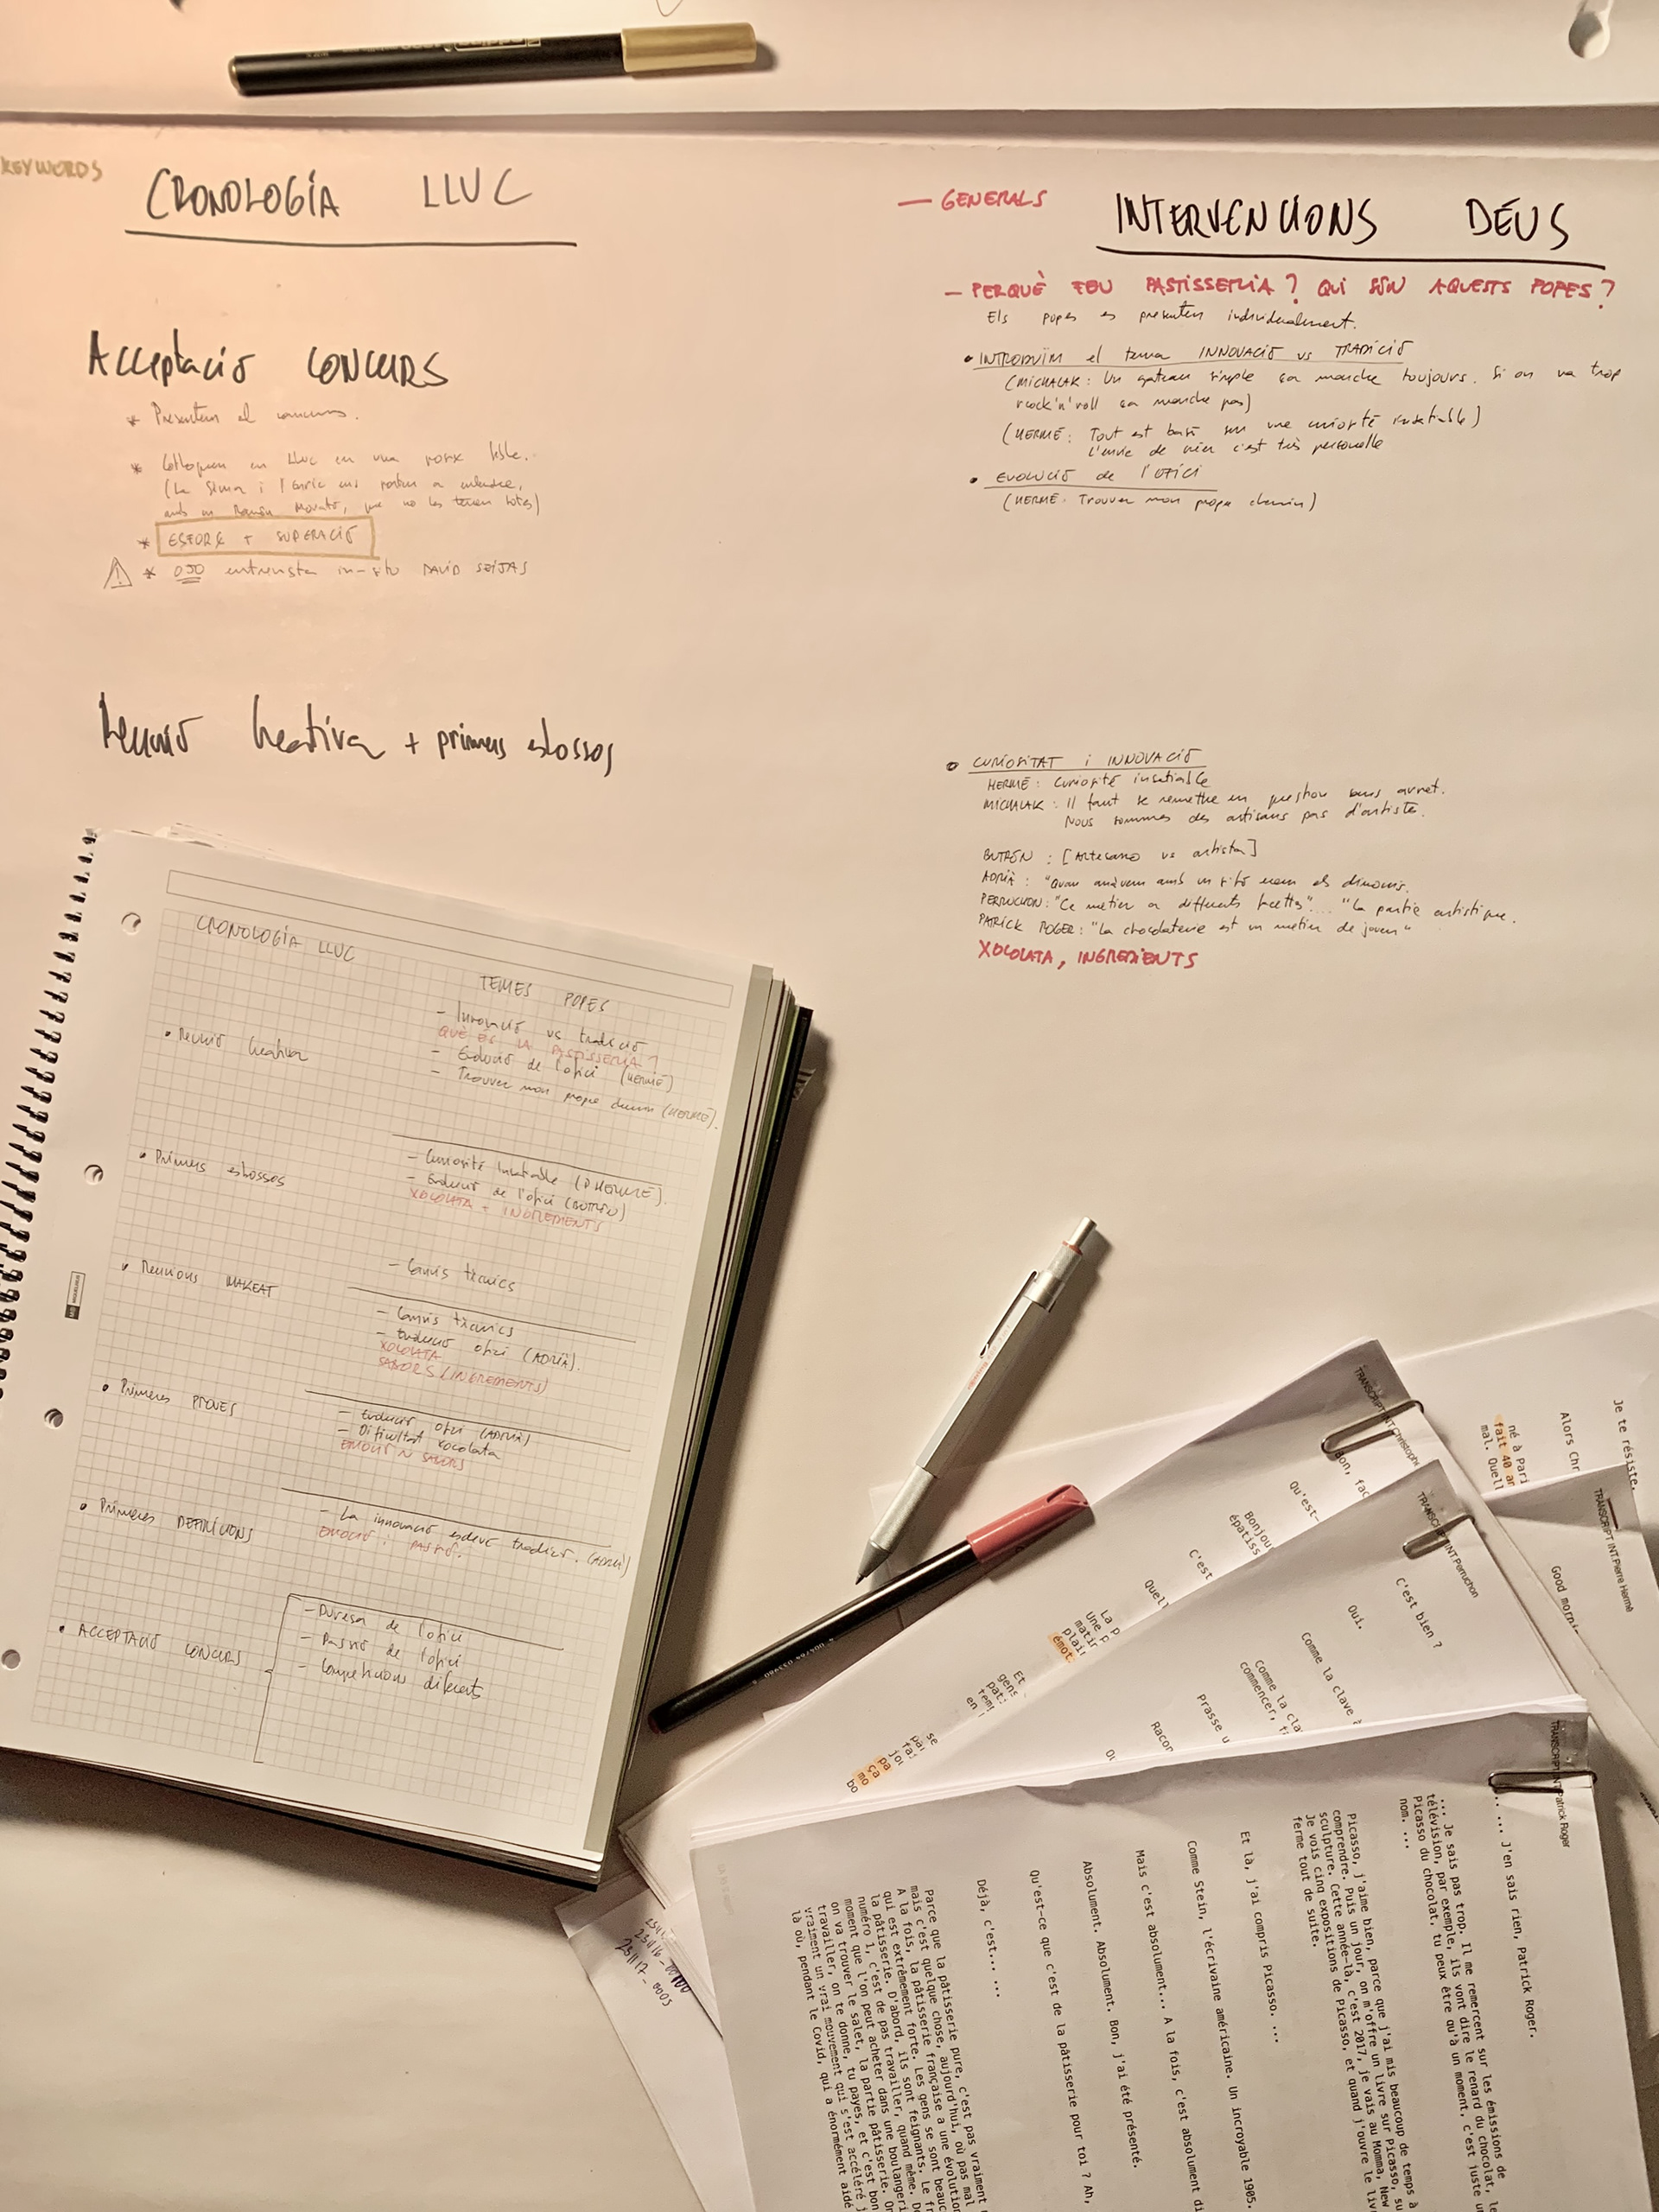 KEYWORDS
CRONOLOGÍA LLUC
Acceptació CONCURS
* Presentem el concurs.
* Col·loquem en Lluc en una
(La Sima i l'Enric ens
amb en Ramon Morató, que no les tenen totes)
* ESFORÇ + SUPERACIÓ
* OJO entrevista in-situ DAVID SEIJAS
Reunió Creativa + primers esbossos
— GENERALS
INTERVENCIONS DÉUS
— PERQUÈ FEU PASTISSERIA? QUI SÓN AQUESTS POPES?
Els popes es presenten individualment.
• INTRODUÏM el tema INNOVACIÓ vs TRADICIÓ
(MICHALAK: Un gateau simple ça marche toujours. Si on va trop
rock'n'roll ça marche pas)
(HERMÉ: Tout est basé sur une curiosité insatiable)
l'envie de créer c'est très personelle
• EVOLUCIÓ de l'OFICI
(HERMÉ: Trouver mon propre chemin)
• CURIOSITAT i INNOVACIÓ
HERMÉ: Curiosité insatiable
MICHALAK: Il faut se remettre en question
Nous sommes des artisans pas d'artiste.
BUTRÓN: [Artesano vs artista]
ADRIÀ: "Quan anàvem amb un
PERRUCHON: "Ce métier a différents "... "La partie artistique.
PATRICK ROGER: "La chocolaterie est un métier de "
XOCOLATA, INGREDIENTS
CRONOLOGÍA LLUC
TEMES POPES
• Reunió Creativa
- Innovació vs tradició
QUÈ ÉS LA PASTISSERIA?
- Evolució de l'ofici (HERMÉ)
- Trouver mon propre chemin (HERMÉ).
• Primers esbossos
- Curiosité insatiable (P.HERMÉ).
- Evolució de l'ofici (BUTRÓN)
XOCOLATA - INGREDIENTS
• Reunions MAKEAT
- Canvis tècnics
- Canvis tècnics
- Evolució ofici (ADRIÀ).
XOCOLATA
SABORS (INGREDIENTS)
• Primeres PROVES
- Evolució ofici (ADRIÀ)
- Dificultat xocolata
EMOCIÓ N SABORS
• Primeres DEFINICIONS
- La innovació esdevé tradició. (ADRIÀ)
EMOCIÓ i PASSIÓ.
• ACCEPTACIÓ CONCURS
- Duresa de l'ofici
- Passió de l'ofici
- Competicions diferents
MIQUELRIUS
TRANSCRIPT INT.Christoph
Qu'est-
Bonjou
épatiss
C'est
Quell
La p
Une p
matir
plai
émot
Et
gens
pat
en
se
fa
jou
pa
ça
mo
bo
Je te résiste,
Alors Chr
né à Pari
fait 40 an
mal. Quell
TRANSCRIPT INT.Pierre Hermé
Good morni
TRANSCRIPT INT.Perruchon
C'est bien ?
Oui.
Comme la clave
Comme la cla
commencer, f
Prasse u
Racon
TRANSCRIPT INT.Patrick Roger
... J'en sais rien, Patrick Roger.
... Je sais pas trop. Il me remercent sur les émissions de
télévision, par exemple, ils vont dire le renard du chocolat, le
Picasso du chocolat, tu peux être qu'à un moment, c'est juste u
nom. ...
Picasso, j'aime bien, parce que j'ai mis beaucoup de temps à
comprendre. Puis un jour, on m'offre un livre sur Picasso, su
sculpture. Cette année-là, c'est 2017, je vais au Momma, New
Je vois cinq expositions de Picasso, et quand j'ouvre le liv
ferme tout de suite.
Et là, j'ai compris Picasso. ...
Comme Stein, l'écrivaine américaine. Un incroyable 1905.
Mais c'est absolument... A la fois, c'est absolument di
Absolument. Absolument. Bon, j'ai été présenté.
Qu'est-ce que c'est de la pâtisserie pour toi ? Ah,
Déjà, c'est... ...
Parce que la pâtisserie pure, c'est pas vraiment
mais c'est quelque chose, aujourd'hui, où pas mal
A la fois, la pâtisserie française a une évolution
qui est extrêmement forte. Les gens se sont beauc
la pâtisserie. D'abord, ils sont feignants. Le fr
numéro 1, c'est de pas travailler, quand même. D
moment que l'on peut acheter dans une boulangeri
on va trouver le salet, la partie pâtisserie. On
travailler, on te donne, tu payes, et c'est bon
vraiment un vrai mouvement qui s'est accéléré j
là où, pendant le Covid, qui a énormément aidé
23/1/17-0003